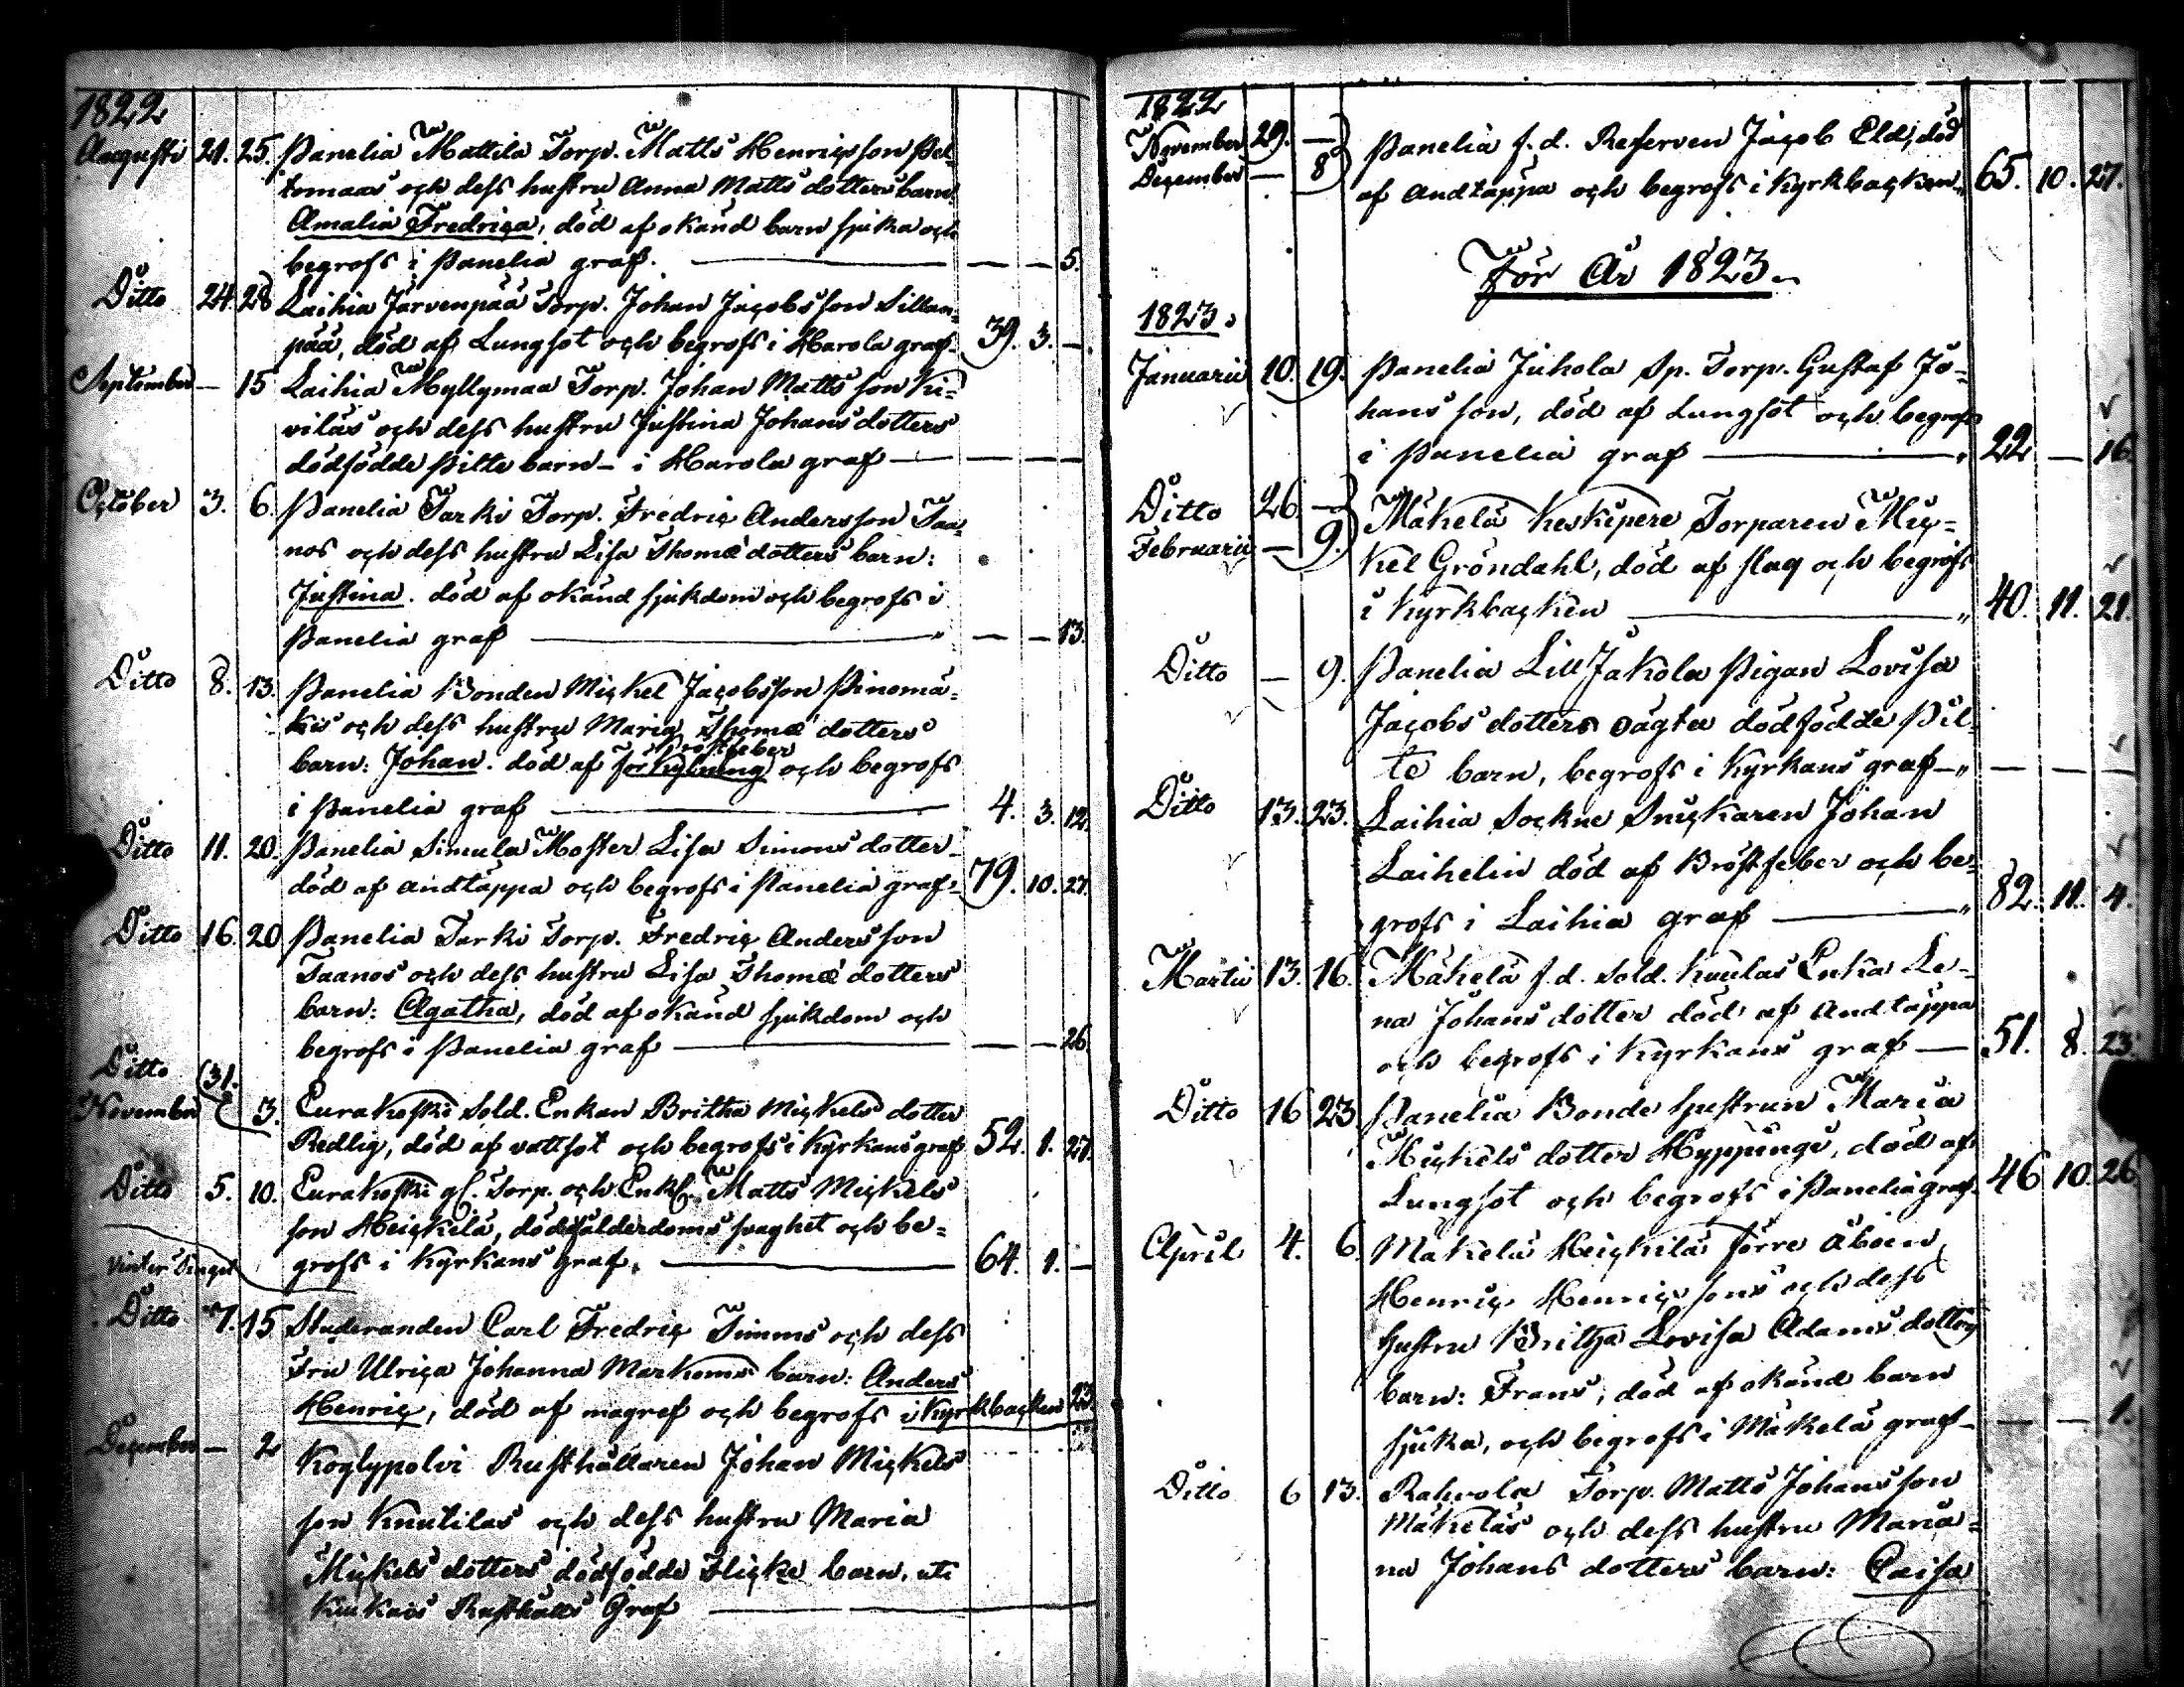 1822
Augusti 21. 25. Panelia Mattila Torp. Matts Henricsson Pel-
tomaas och dess hustru Anna Matts dotters barn
Amalia Fredrica, död af okänd barn sjuka och
begrofs i Panelia graf. — — — 5.
Ditto 24. 28 Laihia Järvenpää Torp. Johan Jacobsson Sillan-
pää, död af Lungsot och begrofs i Harola graf. 39. 3. —
September — 15 Laihia Myllymaa Torp. Johan Mattsson Ki-
viläs och dess hustru Justina Johans dotters
dödfödde Pilte barn — i Harola graf — — — —
October 3. 6. Panelia Tarki Torp. Fredric Andersson Taa-
nos och dess hustru Lisa Thomæ dotters barn:
Justina. död af okänd sjukdom och begrofs i
Panelia graf — „ — — 13.
Ditto 8. 13. Panelia Bonden Mickel Jacobsson Pinomä-
kis och dess hustru Maria Thomæ dotters
bröstfeber
barn: Johan. död af förkylning och begrofs
i Panelia graf — 4. 3. 12.
Ditto 11. 20. Panelia Simula Moster Lisa Simons dotter
död af andtäppa och begrofs i Panelia graf - 79. 10. 27.
Ditto 16. 20 Panelia Tarki Torp. Fredric Andersson
Taanos och dess hustru Lisa Thomæ dotters
barn: Agatha, död af okänd sjukdom och
begrofs i Panelia graf — — — 26.
Ditto 31.
November 3. Eurakoski Sold. Enkan Britha Mickels dotter
Redlig, död af vattsot och begrofs i Kyrkans graf 52. 1. 27.
Ditto 5. 10. Eurakoski gl. Torp. och Enkl. Matts Mickels
son Heickilä, död af ålderdoms svaghet och be-
grofs i Kyrkans graf. — 64. 1. —
Vinter Tinget
Ditto 7. 15 Studeranden Carl Fredric Timms och dess
Fru Ulrica Johanna Markoms barn: Anders
Henric, död af magref och begrofs i Kyrkbacken 23.
December — 2 Koylypolvi Rusthållaren Johan Mickels
son Knutilas och dess hustru Maria
Mickels dotters dödfödde Flicke barn, uti
Rusthålls Graf —
1822
November 29. —
December — 8 Panelia f. d. Reserven Jacob Eld, död
af andtäppa och begrofs i Kyrkbacken „ 65. 10. 27.
För År 1823.
1823.
Januarii 10. 19. Panelia Juhola Sp. Torp. Gustaf Jo-
hansson, död af Lungsot och begrofs
i Panelia graf — „ 22 — 16.
Ditto 26. —
Februarii — 9. Mäkelä Keskipere Torparen Mic-
kel Gröndahl, död af slag och begrofs
i Kyrkbacken — „ 40. 11. 21.
Ditto — 9. Panelia Lill Jakola Pigan Lovisa
Jacobs dotters oägta dödfödde Pil-
te barn, begrofs i Kyrkans graf — „ — — —
Ditto 13. 23. Laihia Sockne Snickaren Johan
Laihelin död af Bröstfeber och be-
grofs i Laihia graf — „ 82. 11. 4.
Martii 13. 16. Mäkelä f. d. Sold. Kuulas Enka Le-
na Johans dotter död af Andtäppa
och begrofs i Kyrkans graf — 51. 8. 23.
Ditto 16 23 Panelia Bonde hustrun Maria
Mickels dotter Hyppingi, död af
Lungsot och begrofs i Panelia graf. 46 10. 26
April 4. 6. Mäkelä Heickilä förre åboen
Henric Henricsons och dess
hustru Britha Lovisa Adams dotters
barn: Frans, död af okänd barn
sjuka, och begrofs i Mäkelä graf — — — 1.
Ditto 6 13. Rahvola Torp. Matts Johansson
Mäkeläs och dess hustru Maria-
na Johans dotters barn: Caisa